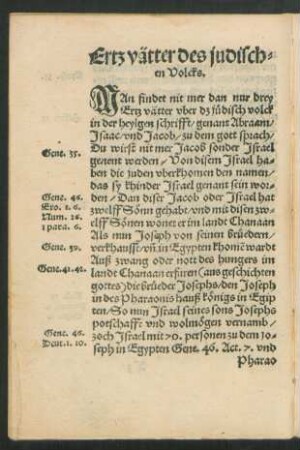 Ertz vätter des judisch-
en Volcks.
MAn findet nit mer dan nur drey
Ertz vätter vber dz jüdisch volck
in der heyligen schrifft/ genant Abraam/
Isaac/ vnd Jacob/ zu dem gott sprach/
Gene. 35.
Du wirst nit mer Jacob sonder Israel
genent werden/ Von disem Israel ha-
ben die juden vberkhomen den namen/
das sy khinder Israel genant sein wor-
Gene. 46.
den/ Dan diser Jacob oder Israel hat
Exo. 1. 6.
zwelff Sönn gehabt/ vnd mit disen zw-
Num. 26.
elff Sönen wonet er im lande Chanaan
1 para. 6.
Als nun Joseph von seinen brüedern/
Gene. 39.
verkhaufft/ vñ in Egypten khomẽ wardt
Auß zwang oder nott des hungers im
Gene. 41. 42.
lande Chanaan erfüren (aus geschichten
gottes) die brüeder Josephs/ den Joseph
in des Pharaonis hauß königs in Egip
ten/ So nun Israel seines sons Josephs
potschafft vnd wolmögen vernamb/
Gene. 46.
zoch Israel mit 70. personen zu dem Jo-
Deut. 1. 10.
seph in Egypten Gene. 46. Act. 7. vnd
Pharao